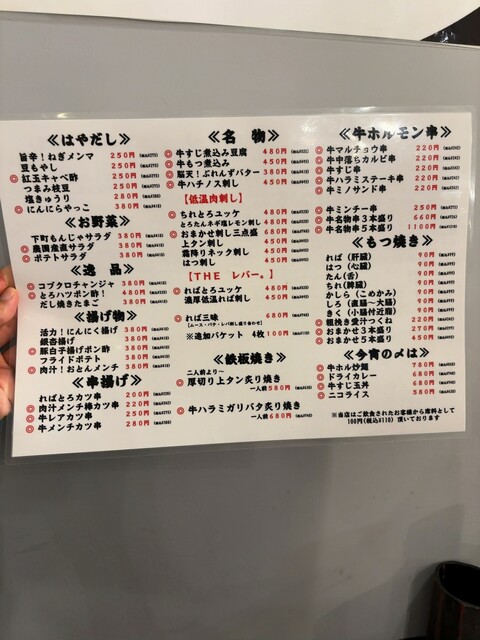 ≪はやだし≫
旨辛！ねぎメンマ 250円(税込¥275)
豆もやし 250円(税込¥275)
◎紅玉キャベ酢 250円(税込¥275)
つまみ枝豆 250円(税込¥275)
塩きゅうり 280円(税込¥308)
◎にんにらやっこ 380円
≪お野菜≫
下町もんじゃサラダ 380円
◎農園直送サラダ 380円
◎ポテトサラダ 380円
≪逸 品≫
◎コプクロチャンジャ 380円
◎とろハツポン酢！ 480円
だし焼きたまご 380円
≪揚げ物≫
活力！にんにく揚げ 380円
銀杏揚げ 380円
◎豚白子揚げポン酢 380円
フライドポテト 380円
◎肉汁！おとんメンチ 380円
≪串揚げ≫
ればとろカツ串 200円
◎肉汁メンチ棒カツ串 220円
◎牛レアカツ串 250円
◎牛メンチカツ串 280円
≪名 物≫
◎牛すじ煮込み豆腐 480円(税込¥528)
◎牛もつ煮込み 450円
◎脳天！ぶれんずバター 380円
◎牛ハチノス刺し 450円
【低温肉刺し】
ちれとろユッケ 480円
とろたんネギ塩レモン刺し 480円
◎おまかせ刺し三点盛 680円
上タン刺し 450円
霜降りネック刺し 450円
はつ刺し 450円
【THE レバー。】
◎ればとろユッケ 480円
濃厚低温れば刺し 450円
◎れば三昧 680円
(ムース・パテ・レバ刺し盛り合わせ)
※追加バケット 4枚100円(税込¥110)
≪鉄板焼き≫
二人前より〜
◎厚切り上タン炙り焼き
一人前580円(税込¥638)
◎牛ハラミガリバタ炙り焼き
一人前680円
≪牛ホルモン串≫
◎牛マルチョウ串 220円(税込¥242)
◎牛中落ちカルビ串 220円(税込¥242)
◎牛すじ串 220円(税込¥242)
◎牛ハラミステーキ串 220円(税込¥242)
◎牛ミノサンド串 220円(税込¥242)
◎牛ミンチー串 250円(税込¥275)
◎牛名物串3本盛り 660円
◎牛名物串5本盛り 1100円
≪もつ焼き≫
れば（肝臓） 90円(税込¥99)
はつ（心臓） 90円(税込¥99)
たん（舌） 90円(税込¥99)
ちれ（脾臓） 90円(税込¥99)
かしら（こめかみ） 90円(税込¥99)
しろ（直腸〜大腸） 90円(税込¥99)
きく（小腸付近膜） 90円(税込¥99)
◎粗挽き愛汁つくね 220円(税込¥242)
◎おまかせ3本盛り 270円(税込¥297)
◎おまかせ5本盛り 450円(税込¥495)
≪今宵の〆は≫
◎牛ホル炒麺 780円
◎ドライカレー 680円
◎牛すじ玉丼 680円
◎ニコライス 580円
※当店はご飲食されたお客様から席料として
100円(税込¥110) 頂いております